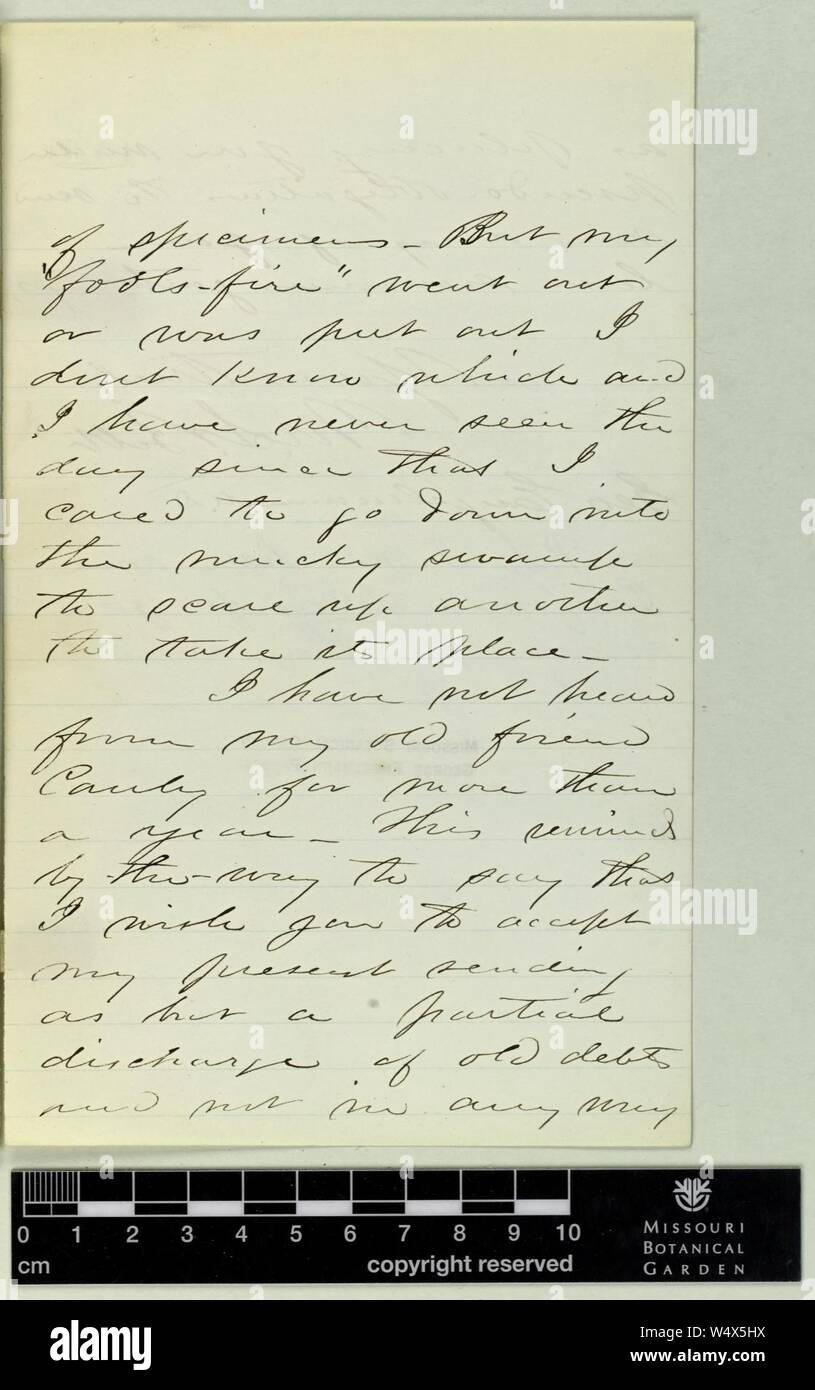 of specimens - But my
"fools-fire" went out
or was put out I
dont know which and
I have never seen the
day since that I
cared to go down into
the mucky swamp
to scare up another
to take its place -
I have not heard
from my old friend
Canby for more than
a year - This reminds
by-the-way to say that
I wish you to accept
my present sending
as but a partial
discharge of old debts
and not in any way
0 1 2 3 4 5 6 7 8 9 10
cm
copyright reserved
MISSOURI
BOTANICAL
GARDEN
alamy
alamy
Image ID: W4X5HX
www.alamy.com